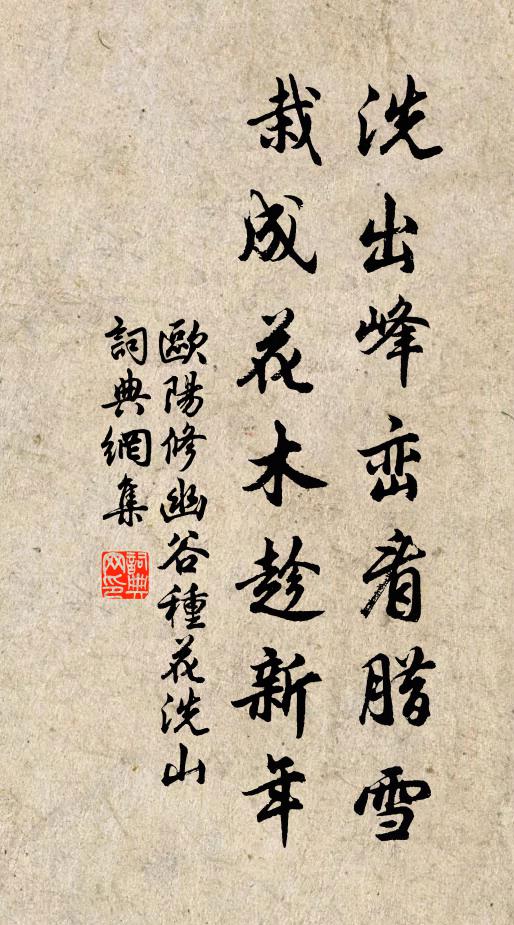 洗出峰峦看腊雪
栽成花木趁新年
歐陽修幽谷種花洗山
詞典網集
詞典网印